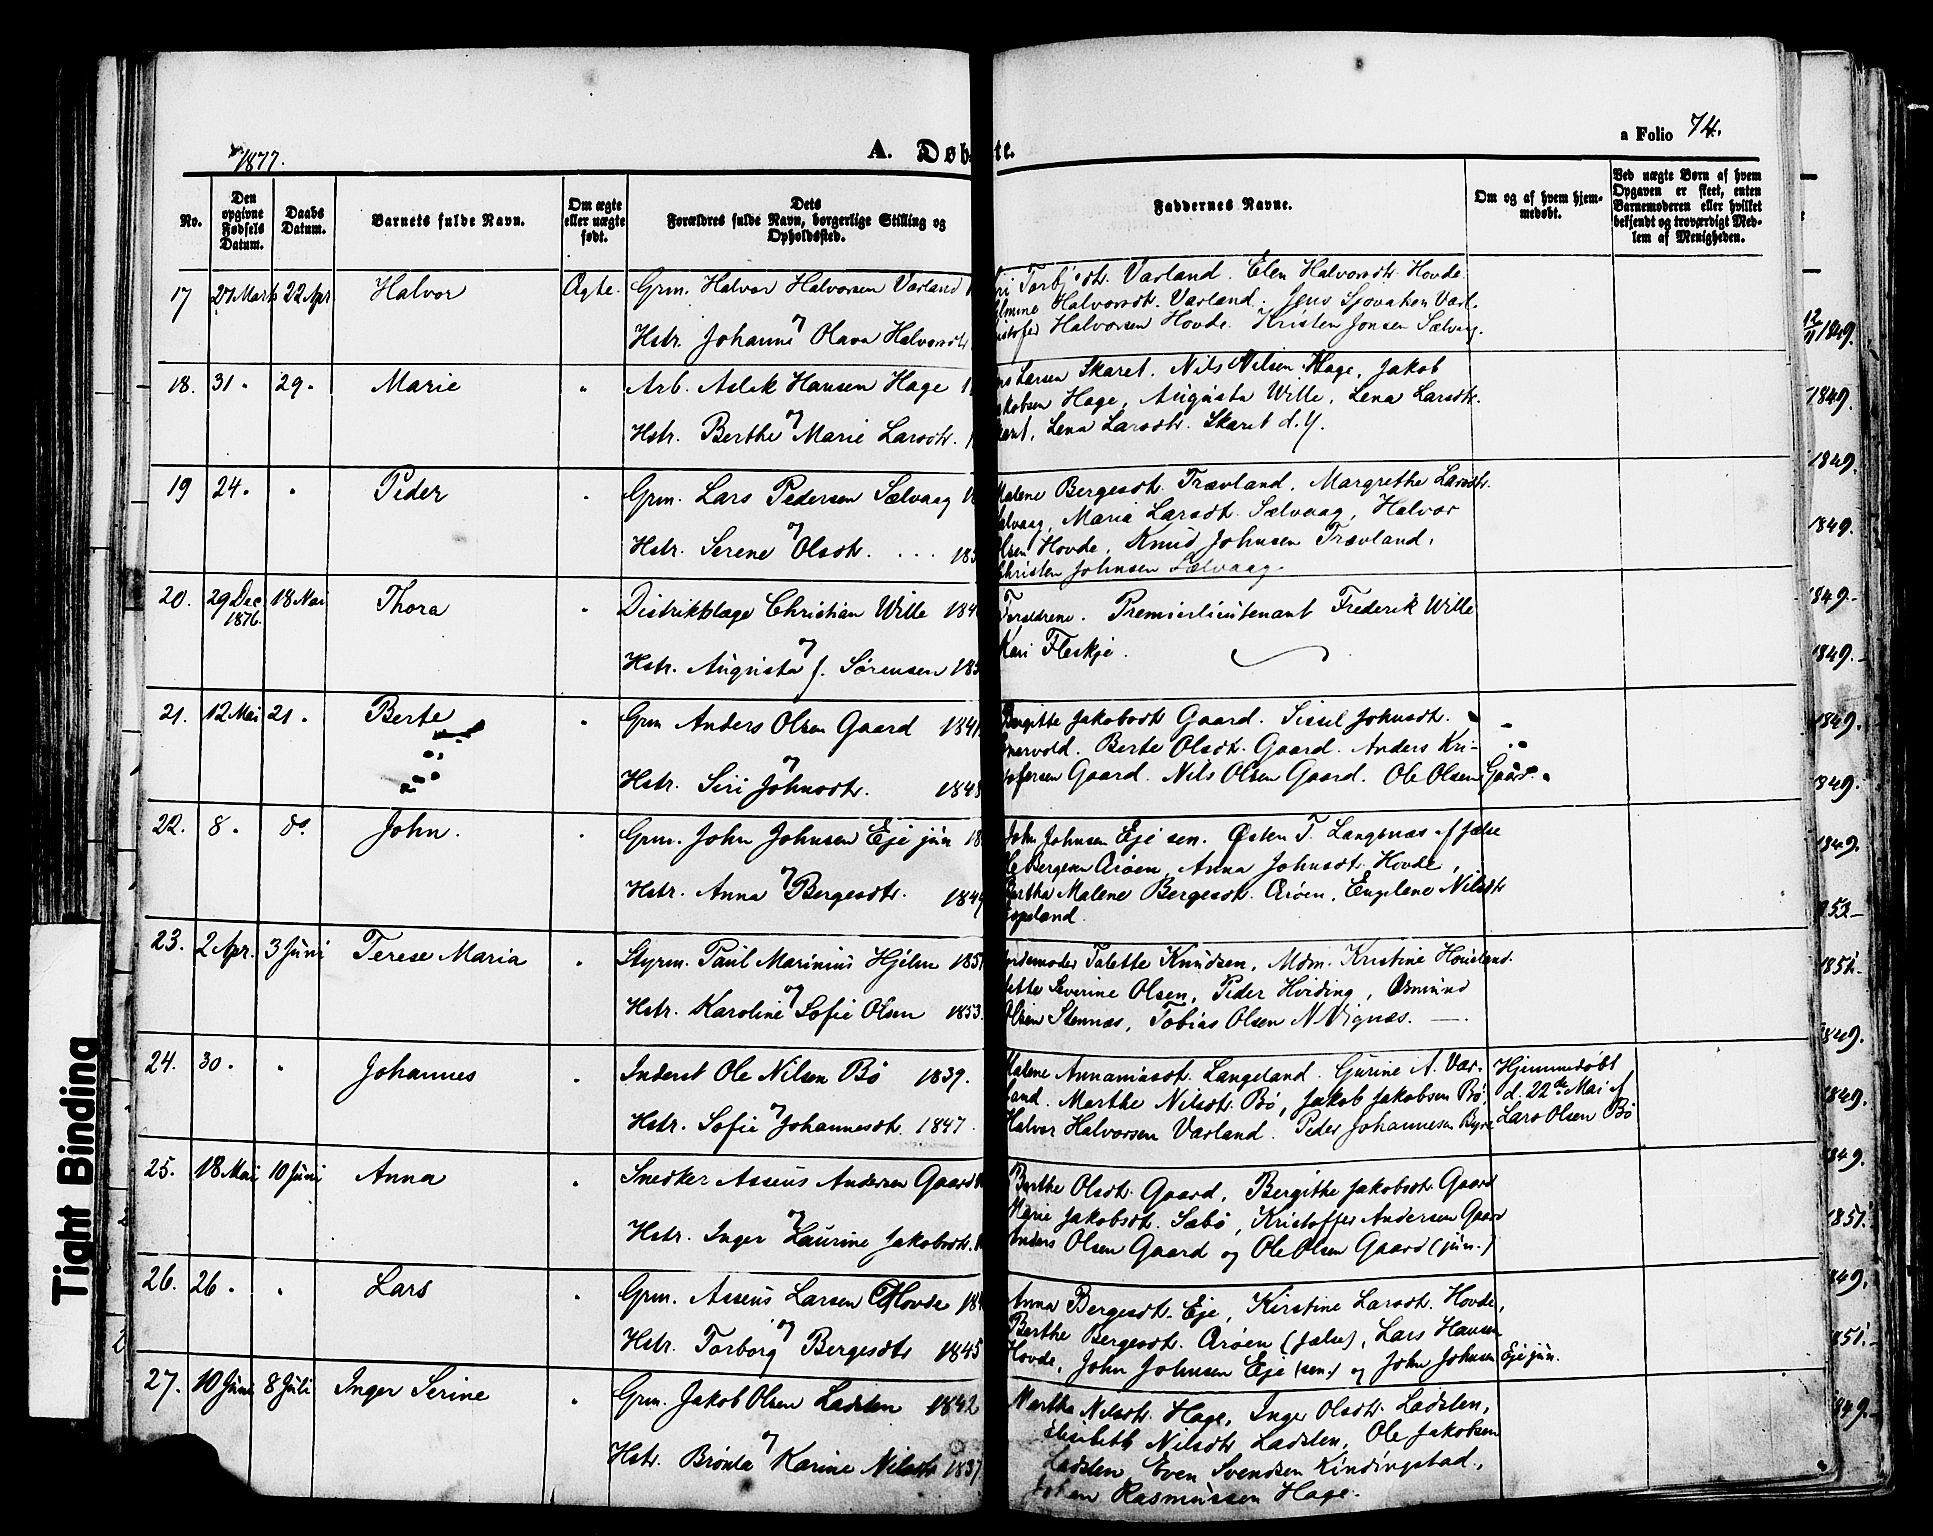 1877.
A. Døbte.
a Folio 74.
No.
Den opgivne Fødsels Datum.
Daabs Datum.
Barnets fulde Navn.
Om ægte eller uægte født.
Dets Forældres fulde Navn, borgerlige Stilling og Opholdssted.
Faddernes Navne.
Om og af hvem hjemmedøbt.
Ved uægte Børn af hvem Opgaven er skeet, enten Barnemoderen eller hvilket bekjendt og troværdigt Medlem af Menigheden.
17 27 Marts 22 Apr Halvor Ægte. Grm. Halvor Halvorsen Varland
og
Hstr. Johanne Olava Halvorsdtr
Torbjsdtr. Varland. Elen Halvorsdtr. Hovde
Halvorsdtr. Varland. Jens Sjovatsen Varl.
Halvorsen Hovde. Kristen Jonsen Sælvaag.
18. 31 " 29 " Marie " Arb. Aslak Hansen Hage
og
Hstr. Berthe Marie Larsdtr.
Larsen Skaret. Nils Nilsen Hage, Jakob
Jakobsen Hage, Augusta Wille, Lena Larsdtr.
Skaret, Lena Larsdtr. Skaret d. y.
19 24 " " Peder " Grm. Lars Pedersen Sælvaag
og
Hstr. Serene Olsdtr. . . .
Malene Bergesdtr. Trævland, Margrethe Larsdtr.
Sælvaag, Maria Larsdtr. Sælvaag, Halvor
Olsen Hovde, Knud Johnsen Trævland,
Christen Johnsen Sælvaag
20. 29 Dec 1876. 18 Mai Thora " Distriktslæge Christian Wille
og
Hstr. Augusta f. Sørensen
Forældrene. Premierlieutenant Frederik Wille
Kari Fleskje.
21. 12 Mai 21 " Berte " Grm Anders Olsen Gaard 1841
og
Hstr. Siri Johnsdtr. 1848
Bergitte Jakobsdtr Gaard. Sissel Johnsdtr.
Berte Olsdtr. Gaard. Anders Kri-
stofersen Gaard. Nils Olsen Gaard. Ole Olsen Gaard.
22. 8 " do John. " Grm. John Johnsen Eje jun
og
Hstr. Anna Bergesdtr. 1849
John Johnsen Eje sen. Østen T. Langenæs af Jælse
Ole Bergesen Arøen, Anna Johnsdt. Hovde,
Bertha Malene Bergesdt. Arøen, Engelene Nilsdtr
23. 2 Apr. 3 Juni Terese Maria " Styrm. Paul Marinius Hjelm
og
Hstr. Karoline Sofie Olsen 1853.
Jordemoder Talette Knudsen, Mdm. Kristine Houeland
Severine Olsen, Peder Hviding, Osmund
Olsen Stennæs, Tobias Olsen N. Vignæs.
24. 30 " " Johannes " Inderst Ole Nilsen Bø 1839.
og
Hstr. Sofie Johannesdtr. 1847.
Malene Annaniasdt. Langeland. Gurine A. Var-
land. Marthe Nilsdtr. Bø, Jakob Jakobsen Bø,
Halvor Halvorsen Varland. Peder Johannesen Byre
Hjemmedøbt
d. 22de Mai af
Lars Olsen Bø
25. 18 Mai 10 Juni Anna " Snedker Asseus Andersen Gaard
og
Hstr. Inger Laurine Jakobsdtr.
Berthe Olsdtr. Gaard, Bergithe Jakobsdtr. Gaard
Marie Jakobsdt. Sæbø, Kristoffer Andersen Gaard
Anders Olsen Gaard og Ole Olsen Gaard (jun.)
26. 26 " " Lars " Grm. Asseus Larsen Hovde
og
Hstr. Torborg Bergesdtr 1845
Anna Bergesdtr. Eje, Kirstine Larsdt. Hovde,
Berthe Bergesdt. Arøen (Jælse), Lars Hansen
Hovde, John Johnsen Eje (sen.) og John Johnsen Eje jun.
27. 10 Juni 8 Juli Inger Serine " Grm. Jakob Olsen Ladsten 1842
og
Hstr. Brønla Karine Nilsdtr 1837
Martha Nilsdtr. Hage, Inger Olsdtr. Ladsten,
Elisabeth Nilsdtr Ladsten, Ole Jakobsen
Ladsten, Even Svendsen Kindingstad,
Johan Rasmussen Hage.
12/11 1849.
1849.
1849.
1849.
1849.
1849.
1849.
1849.
1849.
1849.
1851.
1849.
1849.
1849.
1851.
1849.
1851.
1849.
Tight Binding